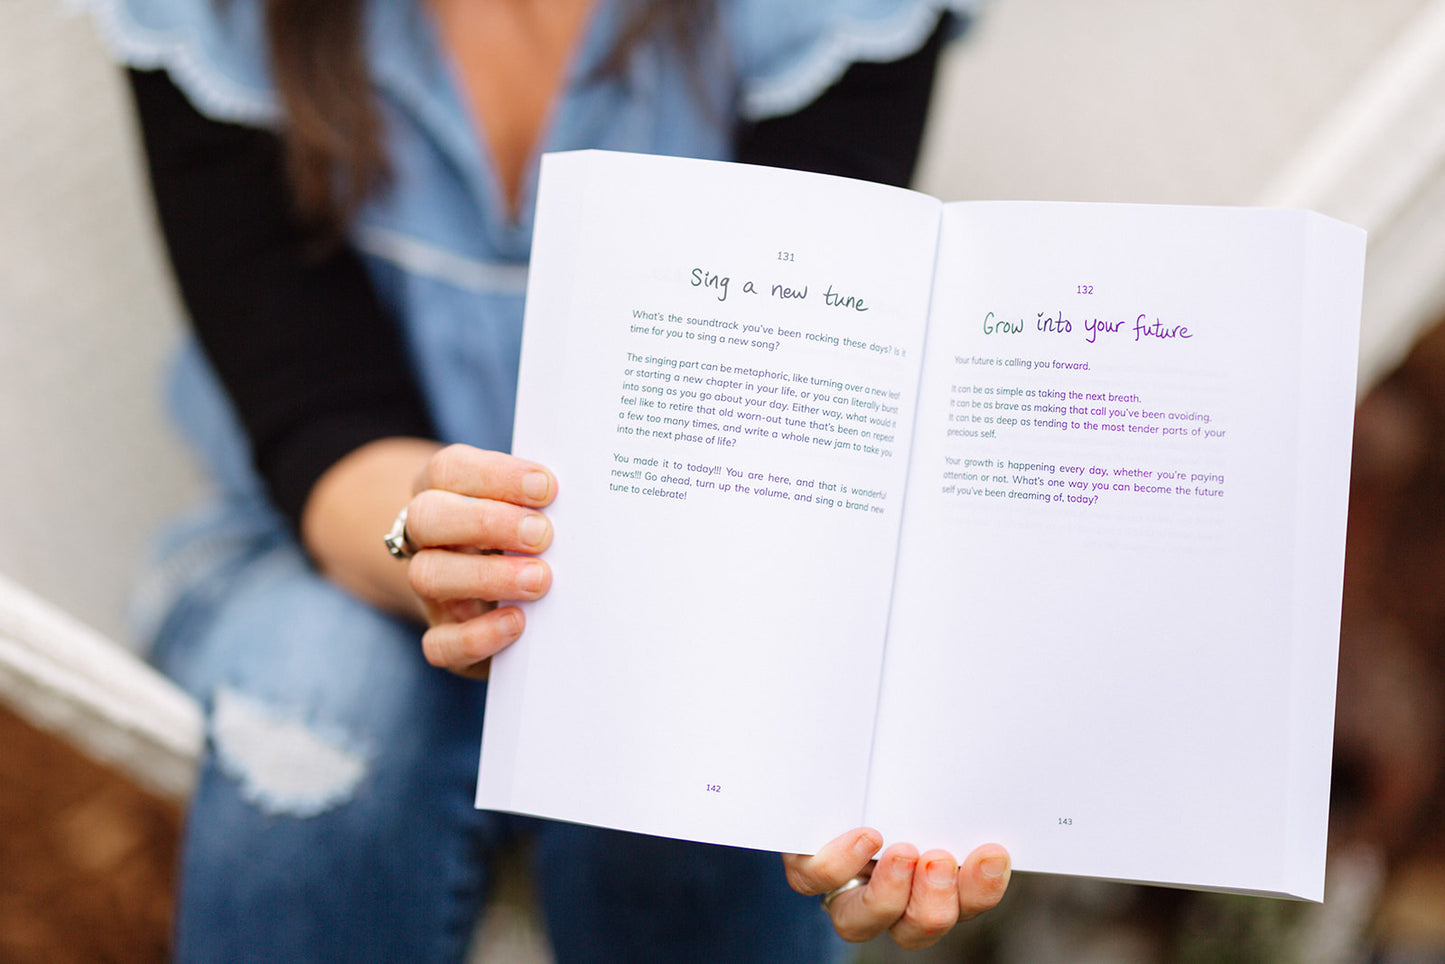 131
Sing a new tune
What's the soundtrack you've been rocking these days? Is it
time for you to sing a new song?
The singing part can be metaphoric, like turning over a new leaf
or starting a new chapter in your life, or you can literally burst
into song as you go about your day. Either way, what would it
feel like to retire that old worn-out tune that's been on repeat
a few too many times, and write a whole new jam to take you
into the next phase of life?
You made it to today!!! You are here, and that is wonderful
news!!! Go ahead, turn up the volume, and sing a brand new
tune to celebrate!
142
132
Grow into your future
Your future is calling you forward.
It can be as simple as taking the next breath.
It can be as brave as making that call you've been avoiding.
It can be as deep as tending to the most tender parts of your
precious self.
Your growth is happening every day, whether you're paying
attention or not. What's one way you can become the future
self you've been dreaming of, today?
143